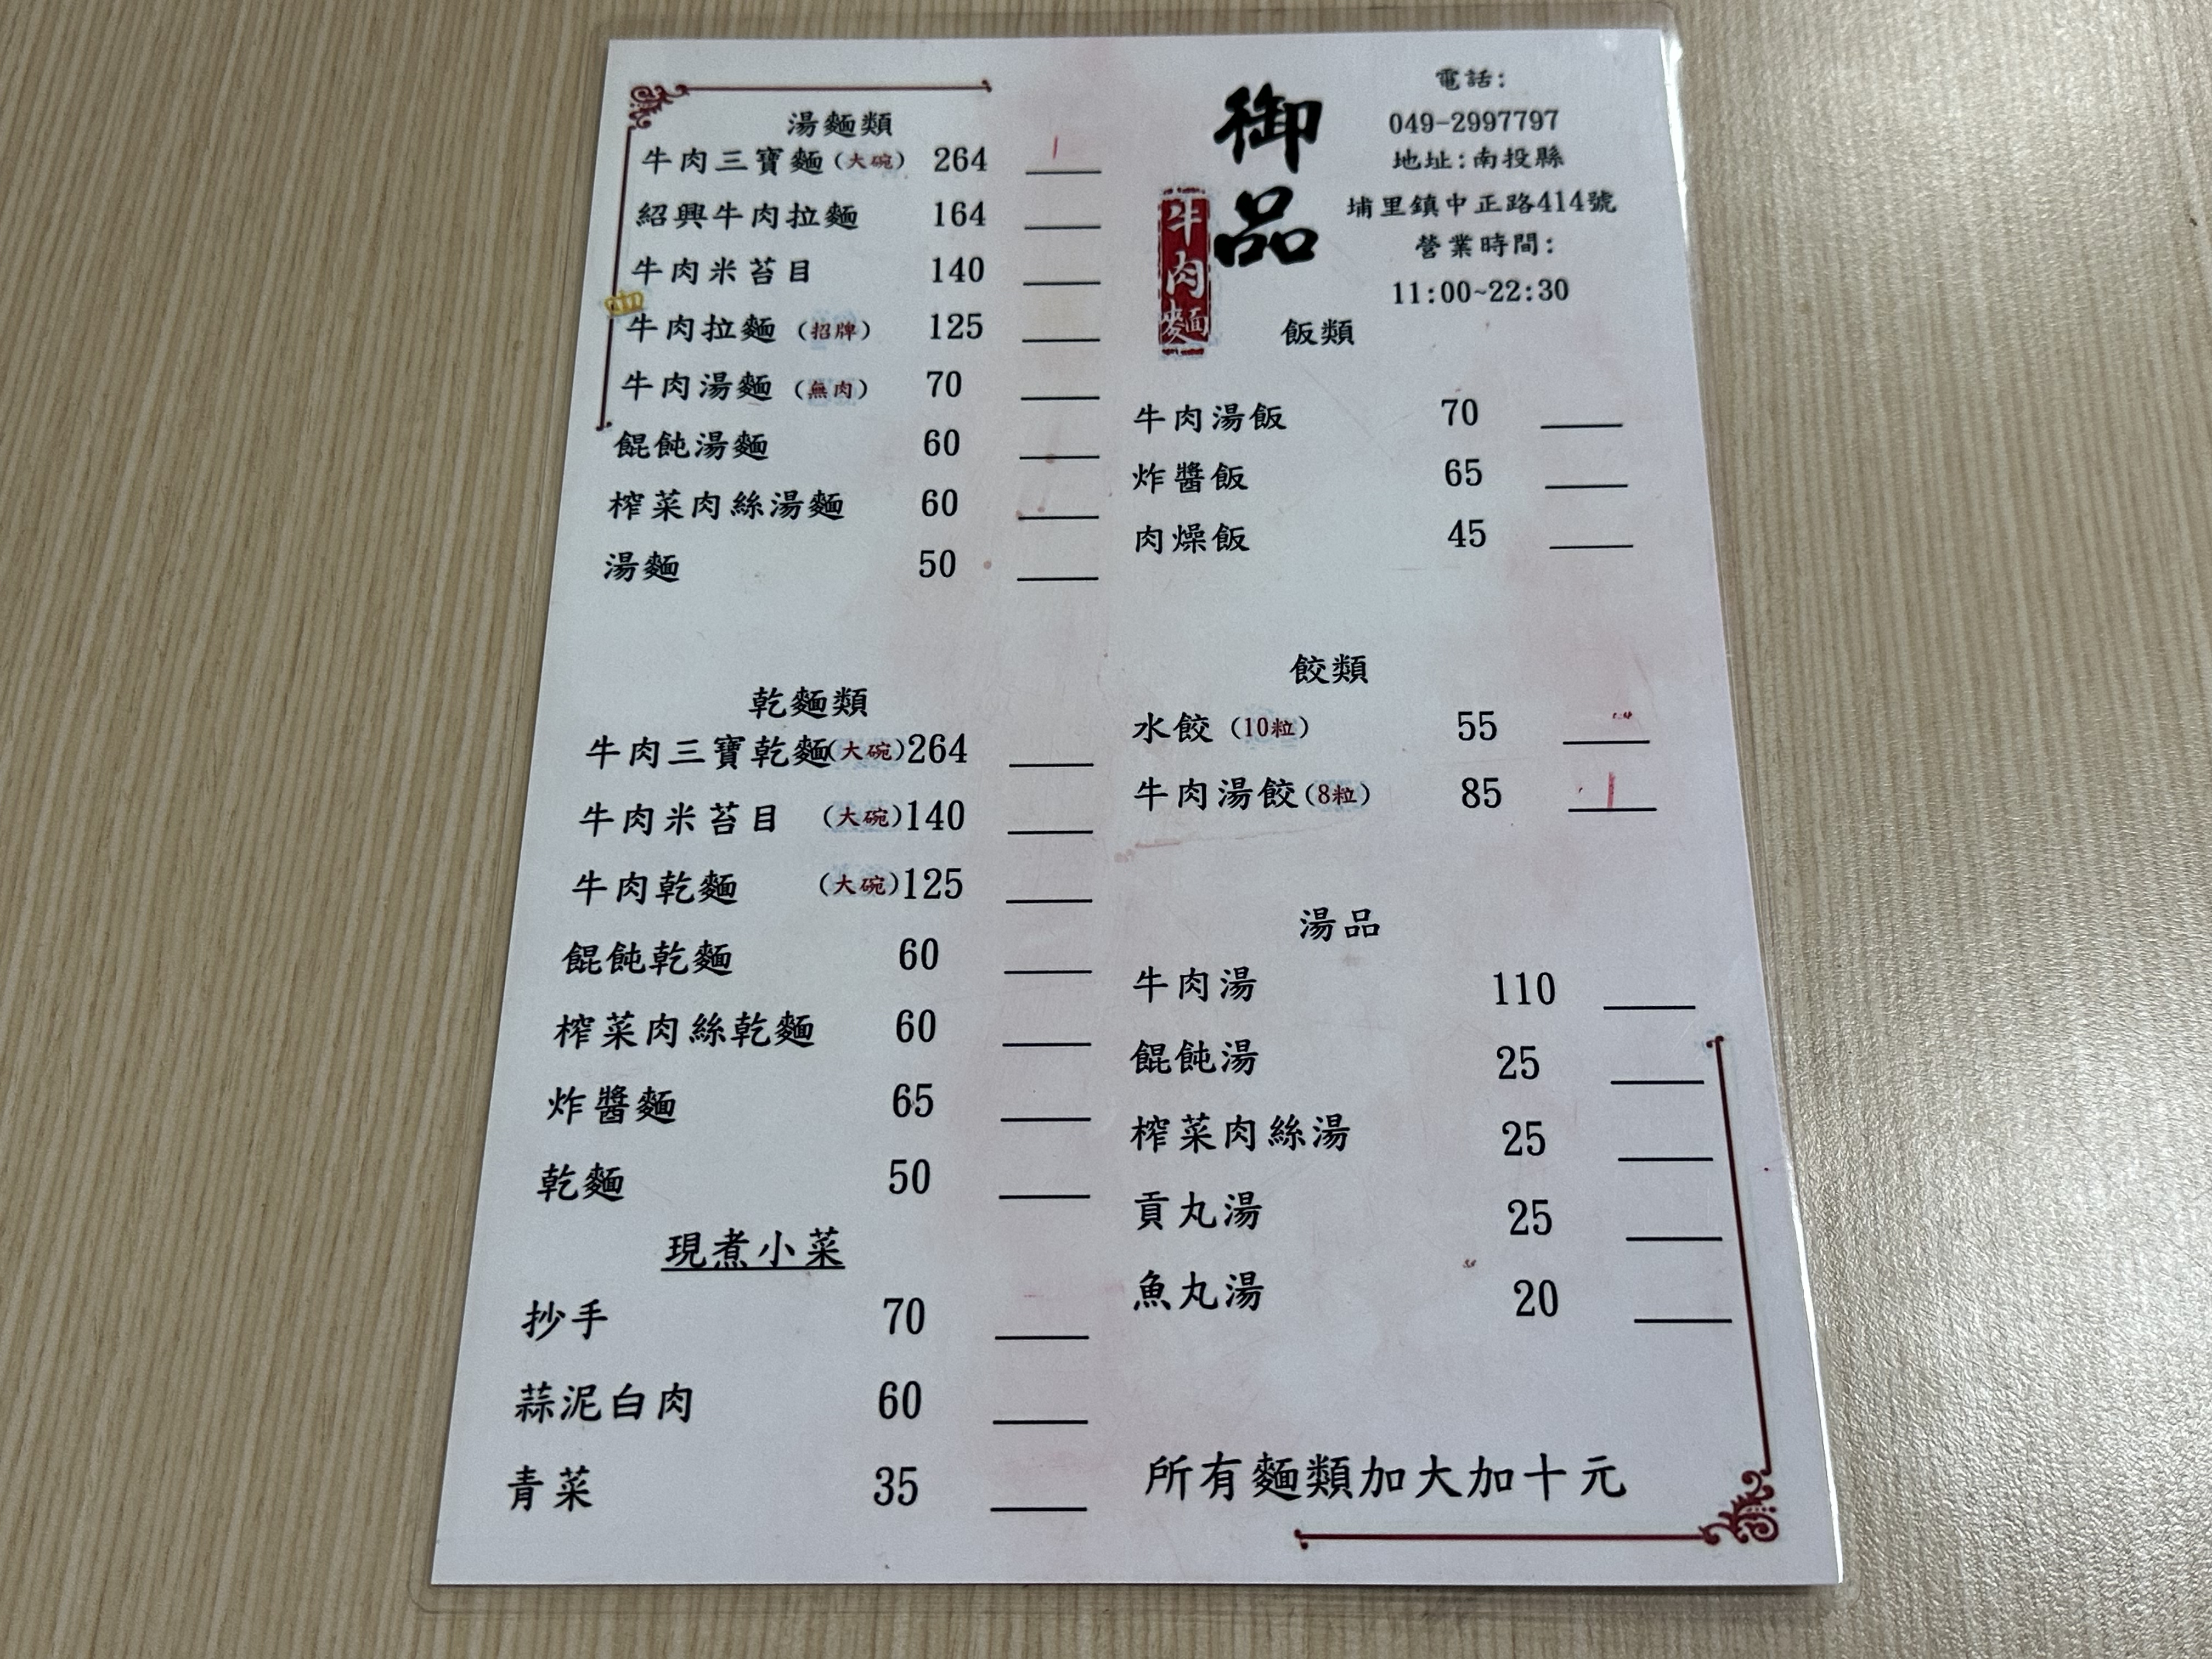 湯麵類
牛肉三寶麵(大碗) 264
紹興牛肉拉麵 164
牛肉米苔目 140
牛肉拉麵 (招牌) 125
牛肉湯麵 (無肉) 70
餛飩湯麵 60
榨菜肉絲湯麵 60
湯麵 50
乾麵類
牛肉三寶乾麵(大碗)264
牛肉米苔目 (大碗)140
牛肉乾麵 (大碗)125
餛飩乾麵 60
榨菜肉絲乾麵 60
炸醬麵 65
乾麵 50
現煮小菜
抄手 70
蒜泥白肉 60
青菜 35
御品
牛肉麵
電話:
049-2997797
地址:南投縣
埔里鎮中正路414號
營業時間:
11:00~22:30
飯類
牛肉湯飯 70
炸醬飯 65
肉燥飯 45
餃類
水餃 (10粒) 55
牛肉湯餃(8粒) 85
湯品
牛肉湯 110
餛飩湯 25
榨菜肉絲湯 25
貢丸湯 25
魚丸湯 20
所有麵類加大加十元